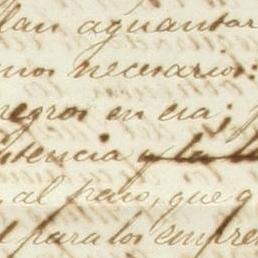 llan aguantar
mos necesarios:
negros en cia;
stencia y la
al paso, que q
l para los empre